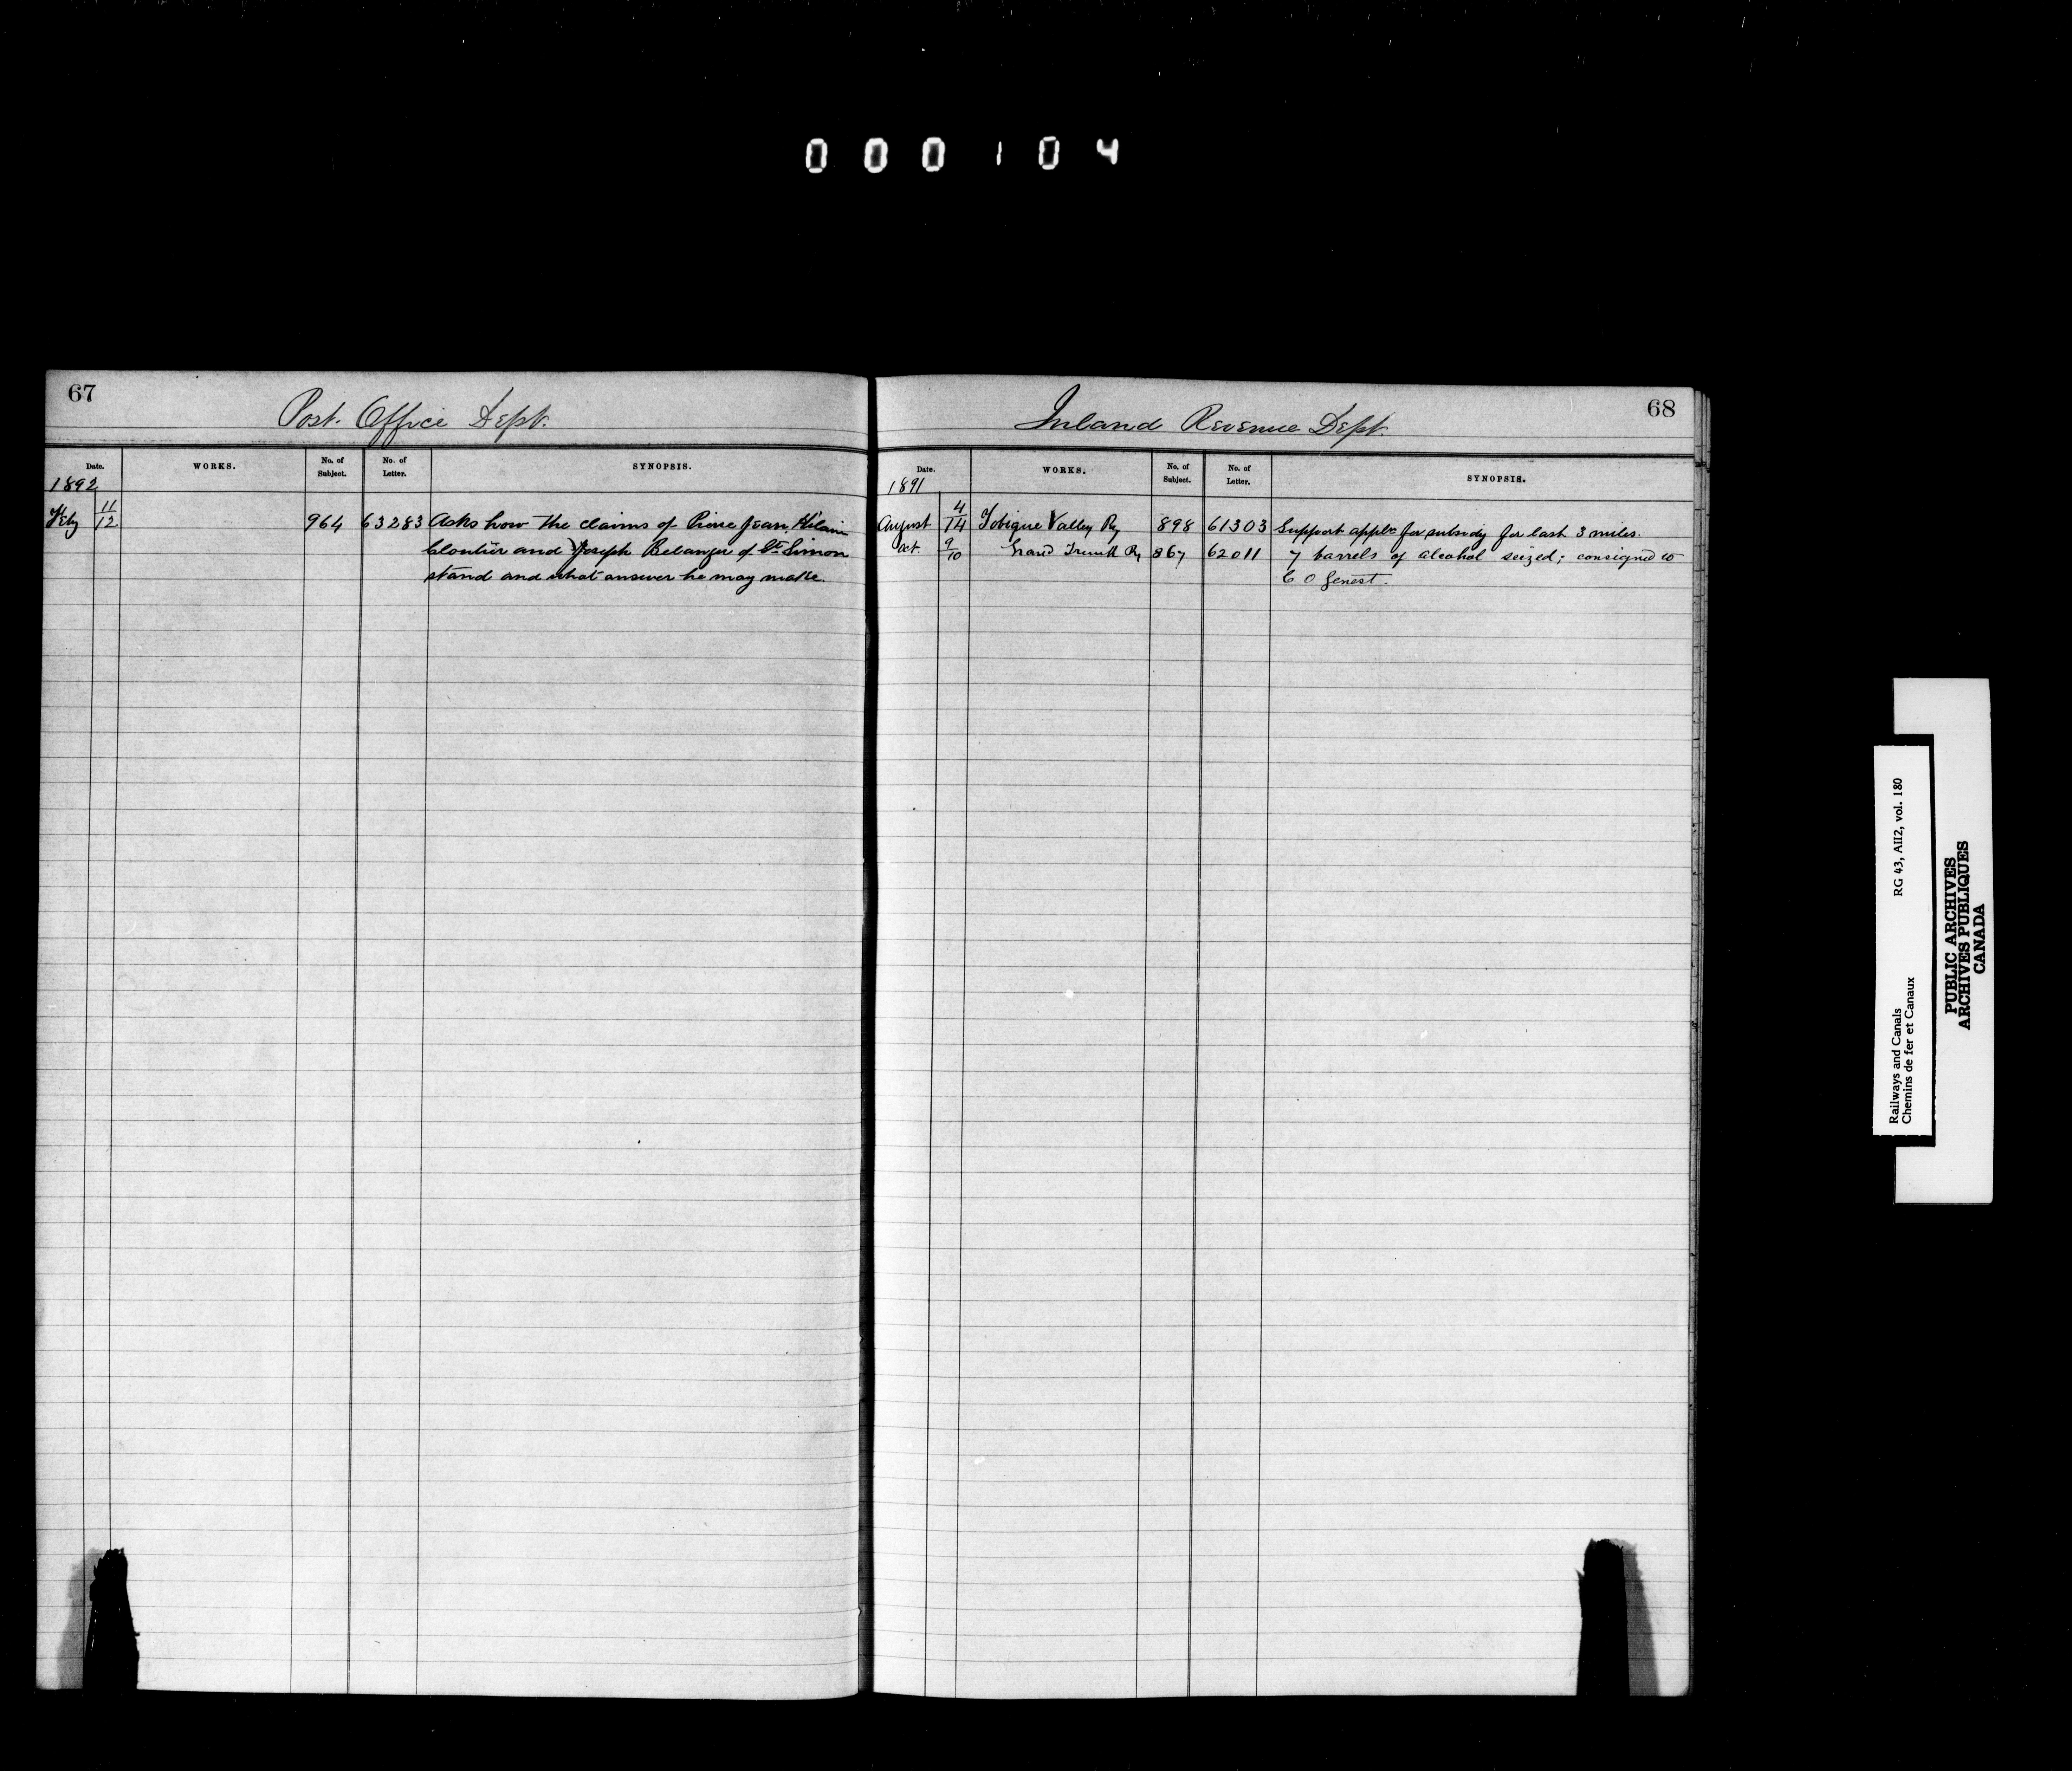 000104
67
Post Office Dept.
Date. WORKS. No. of Subject. No. of Letter. SYNOPSIS.
1892
Feby 11/12 964 63283 Asks how the claims of Pierre Jean, Hilaire
Cloutier and Joseph Belanger of St Simon
stand and what answer he may make.
68
Inland Revenue Dept.
Date. WORKS. No. of Subject. No. of Letter. SYNOPSIS.
1891
August 4/14 Tobique Valley Ry 898 61303 Support appln for subsidy for last 3 miles.
Oct. 9/10 Grand Trunk Ry 867 62011 7 barrels of alcohol seized; consigned to
C O Genest.
Railways and Canals RG 43, AII2, vol. 180
Chemins de fer et Canaux
PUBLIC ARCHIVES
ARCHIVES PUBLIQUES
CANADA